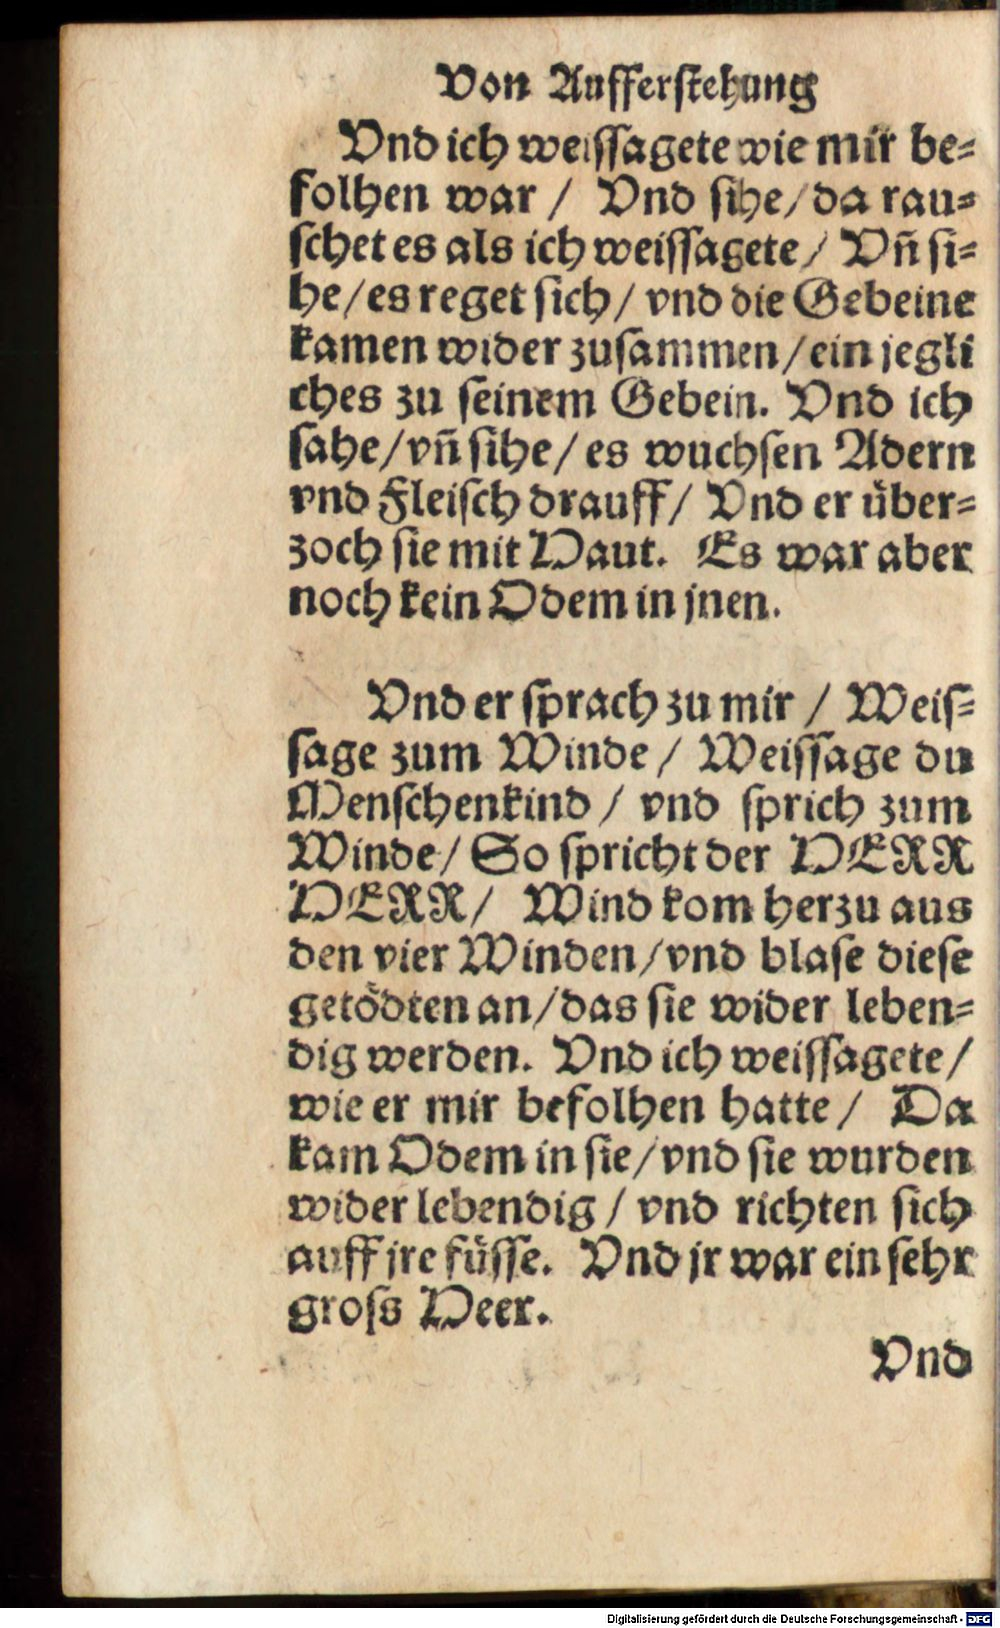 Von Aufferſtehung
Vnd ich weiſſagete wie mir be⸗
folhen war / Vnd ſihe / da rau⸗
ſchet es als ich weiſſagete / Vñ ſi⸗
he / es reget ſich / vnd die Gebeine
kamen wider zuſammen / ein jegli
ches zu ſeinem Gebein. Vnd ich
ſahe / vñ ſihe / es wuchſen Adern
vnd Fleiſch drauff / Vnd er uͤber⸗
zoch ſie mit Haut. Es war aber
noch kein Odem in jnen.
Vnd er ſprach zu mir / Weiſ⸗
ſage zum Winde / Weiſſage du
Menſchenkind / vnd ſprich zum
Winde / So ſpricht der HERR
HERR / Wind kom herzu aus
den vier Winden / vnd blaſe dieſe
getoͤdten an / das ſie wider leben⸗
dig werden. Vnd ich weiſſagete /
wie er mir befolhen hatte / Da
kam Odem in ſie / vnd ſie wurden
wider lebendig / vnd richten ſich
auff jre fuͤſſe. Vnd jr war ein ſehr
groſs Heer.
Vnd
Digitalisierung gefördert durch die Deutsche Forschungsgemeinschaft - DFG